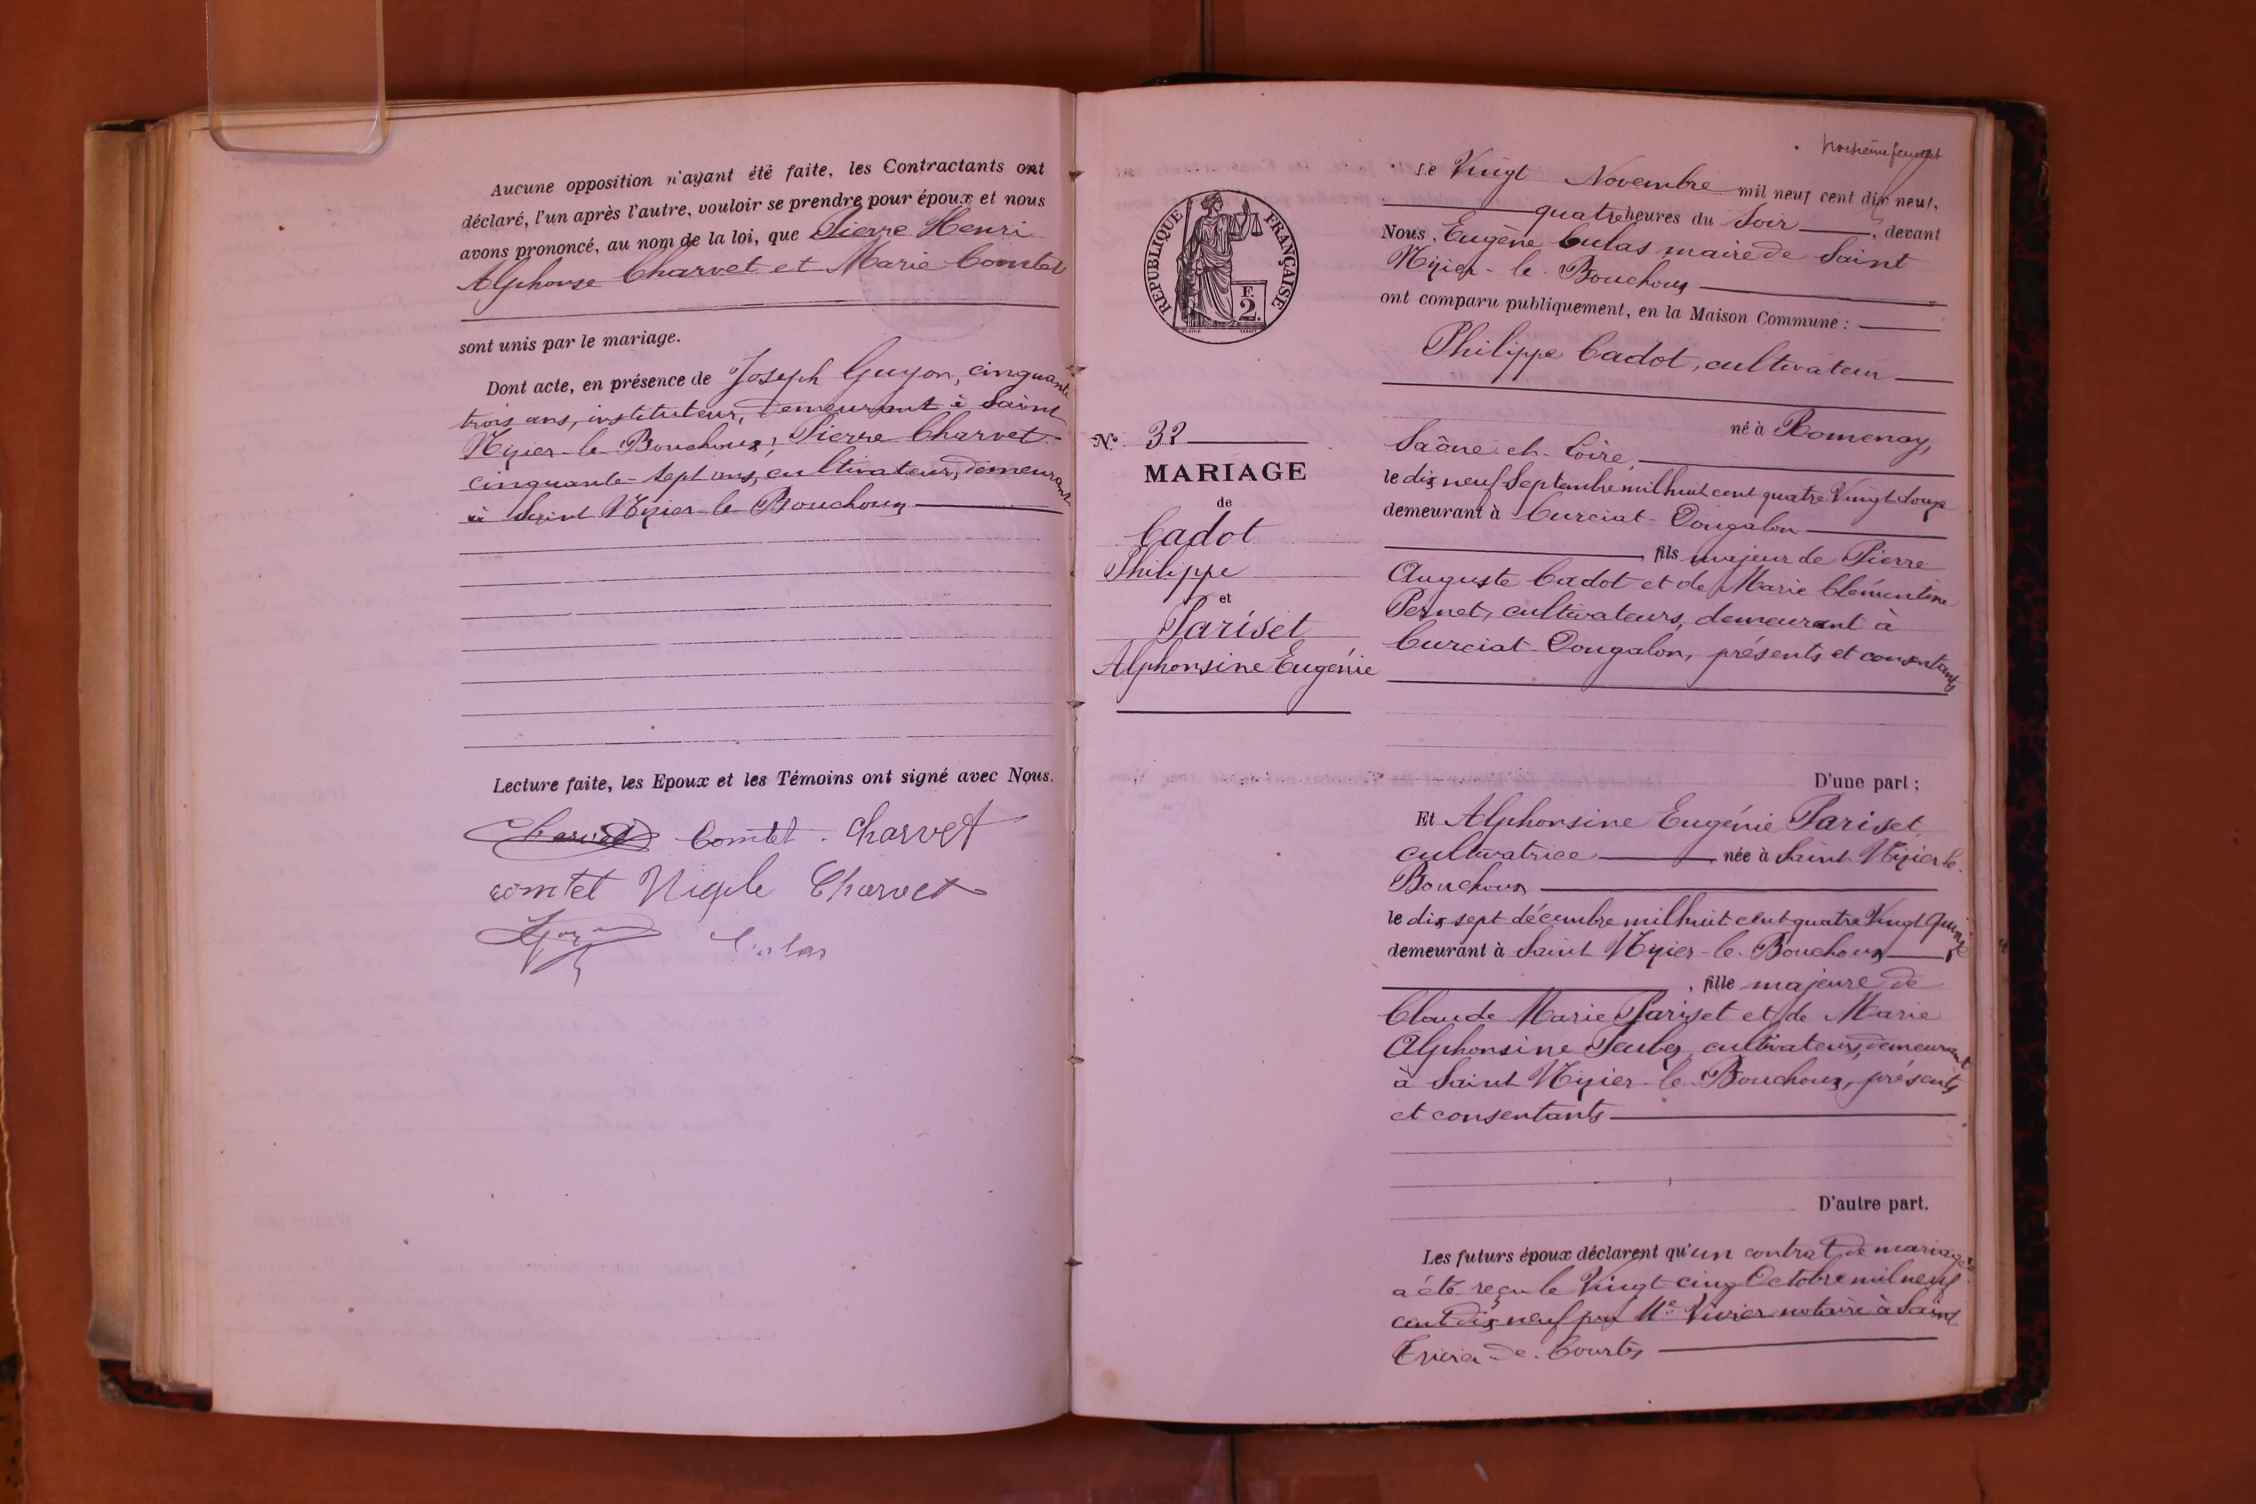 Aucune opposition n'ayant été faite, les Contractants ont
déclaré, l'un après l'autre, vouloir se prendre pour époux et nous
avons prononcé, au nom de la loi, que Pierre Henri
Alphonse Charvet et Marie Comtet
sont unis par le mariage.
Dont acte, en présence de Joseph Guyon, cinquante
trois ans, instituteur, demeurant à Saint
Nizier-le-Bouchoux, Pierre Charvet
cinquante-sept ans, cultivateur, demeurant
à Saint Nizier-le-Bouchoux
Lecture faite, les Epoux et les Témoins ont signé avec Nous.
Charvet Comtet Charvet
comtet Charvet
Culas
feuillet
RÉPUBLIQUE FRANÇAISE
F.
2.
N° 32
MARIAGE
de
Cadot
Philippe
et
Pariset
Alphonsine Eugénie
Le Vingt Novembre mil neuf cent dix neuf,
quatre heures du Soir, devant
Nous, Eugène Culas maire de Saint
Nizier-le-Bouchoux
ont comparu publiquement, en la Maison Commune :
Philippe Cadot, cultivateur
né à Romenay,
Saône-et-Loire,
le dix neuf Septembre mil huit cent quatre Vingt douze
demeurant à Curciat-Dongalon
, fils majeur de Pierre
Auguste Cadot et de Marie Clémentine
Pernet, cultivateurs, demeurant à
Curciat-Dongalon, présents et consentants
D'une part ;
Et Alphonsine Eugénie Pariset,
cultivatrice, née à Saint Nizier-le-
Bouchoux
le dix sept décembre mil huit cent quatre Vingt Quinze
demeurant à Saint Nizier-le-Bouchoux
, fille majeure de
Claude Marie Pariset et de Marie
Alphonsine cultivateurs, demeurant
à Saint Nizier-le-Bouchoux, présents
et consentants
D'autre part.
Les futurs époux déclarent qu'un contrat de mariage
a été reçu le Vingt cinq Octobre mil neuf
cent dix neuf par Me Vivier notaire à Saint
Trivier-de-Courtes